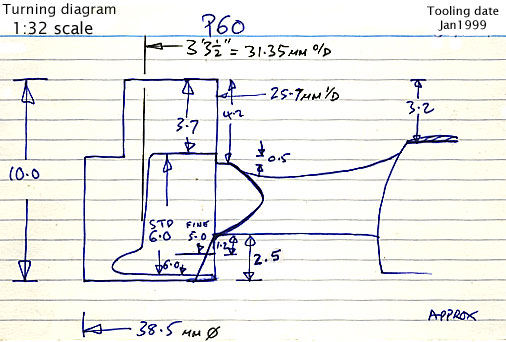 Turning diagram
1:32 scale
P60
Tooling date
Jan1999
3'3½" = 31.35 MM O/D
25.9 MM I/D
4.2
3.2
3.7
0.5
10.0
STD
6.0
FINE
5.0
1.2
6.0
2.5
APPROX
38.5 MM Ø